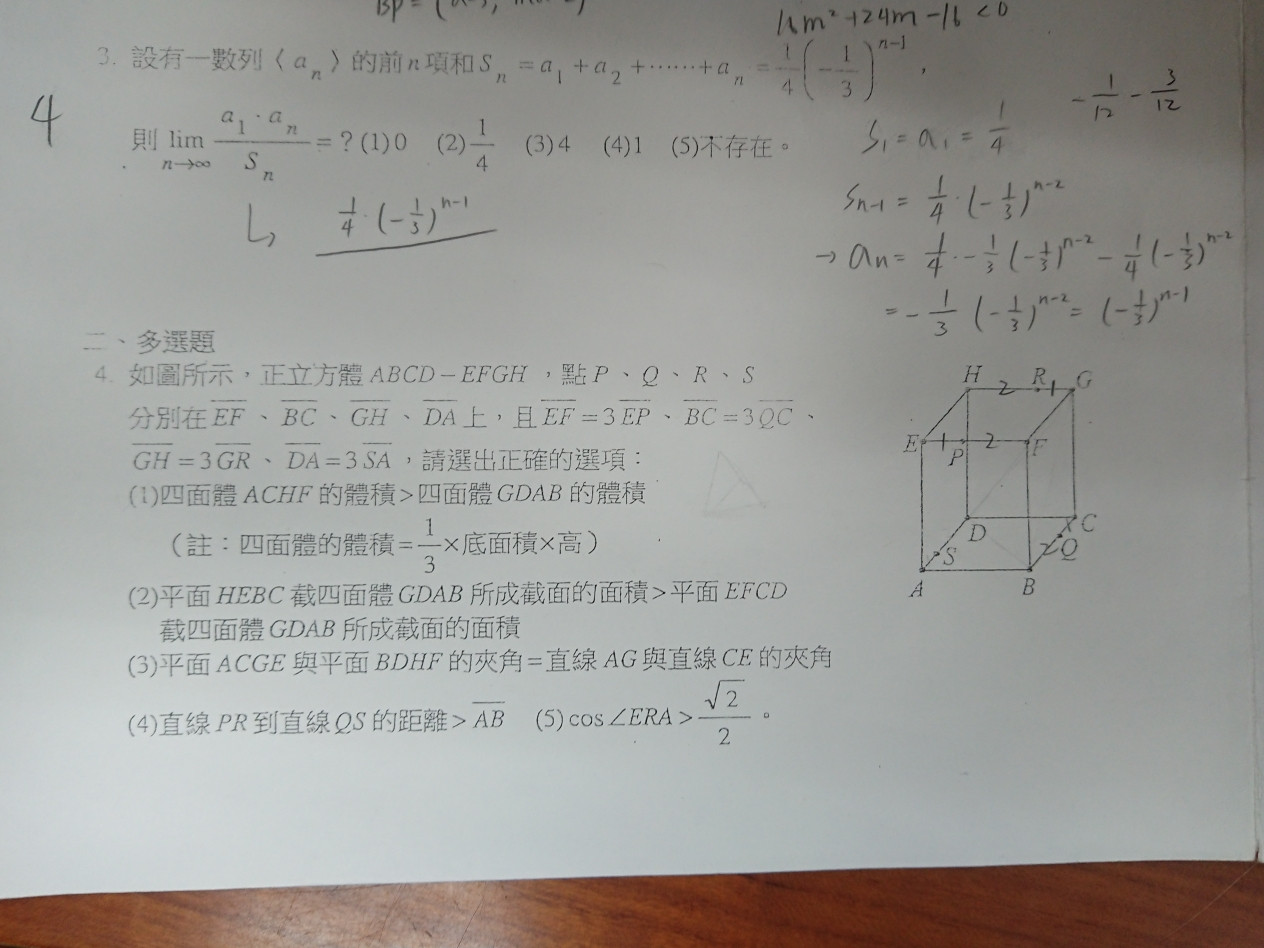 16m² +24m -16 <0
3. 設有一數列〈 aₙ 〉的前n項和Sₙ = a₁ + a₂ + …… + aₙ = 1/4(-1/3)ⁿ⁻¹，
4
-1/12 - 3/12
則 lim n→∞ (a₁ · aₙ)/Sₙ = ? (1) 0 (2) 1/4 (3) 4 (4) 1 (5)不存在。
S₁ = a₁ = 1/4
↳ 1/4 · (-1/3)ⁿ⁻¹
Sₙ₋₁ = 1/4 · (-1/3)ⁿ⁻²
→ aₙ = 1/4 · -1/3 (-1/3)ⁿ⁻² - 1/4 (-1/3)ⁿ⁻²
= -1/3 (-1/3)ⁿ⁻² = (-1/3)ⁿ⁻¹
二、多選題
4. 如圖所示，正立方體 ABCD－EFGH ，點 P 、 Q 、 R 、 S
分別在 E̅F̅ 、 B̅C̅ 、 G̅H̅ 、 D̅A̅ 上，且 E̅F̅ = 3 E̅P̅ 、 B̅C̅ = 3 Q̅C̅ 、
G̅H̅ = 3 G̅R̅ 、 D̅A̅ = 3 S̅A̅ ，請選出正確的選項：
(1)四面體 ACHF 的體積>四面體 GDAB 的體積
（註：四面體的體積= 1/3 ×底面積×高）
(2)平面 HEBC 截四面體 GDAB 所成截面的面積>平面 EFCD
截四面體 GDAB 所成截面的面積
(3)平面 ACGE 與平面 BDHF 的夾角=直線 AG 與直線 CE 的夾角
(4)直線 PR 到直線 QS 的距離> A̅B̅ (5) cos ∠ERA > √2/2 。
H 2 R 1 G
E 1 P 2 F
D C
S 2 Q
A B